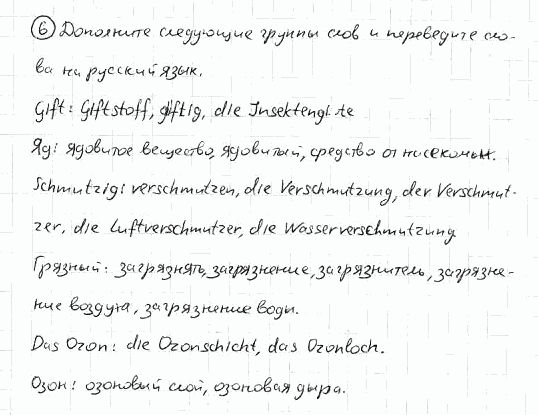 6 Дополните следующие группы слов и переведите сло-
ва на русский язык.
Gift: Giftstoff, giftig, die Insektengifte
Яд: ядовитое вещество, ядовитый, средство от насекомых.
Schmutzig: verschmutzen, die Verschmutzung, der Verschmut-
zer, die Luftverschmutzer, die Wasserverschmutzung
Грязный: загрязнять, загрязнение, загрязнитель, загрязне-
ние воздуха, загрязнение воды.
Das Ozon: die Ozonschicht, das Ozonloch.
Озон: озоновый слой, озоновая дыра.